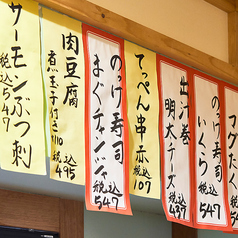 サーモンぶつ刺
税込547
肉豆腐
煮玉子付き110
税込495
のっけ寿司
まぐチャンジャ
税込547
てっぺん串 赤
税込107
出汁巻
明太チーズ
税込437
のっけ寿司
いくら
税込547
マグたく
税込547